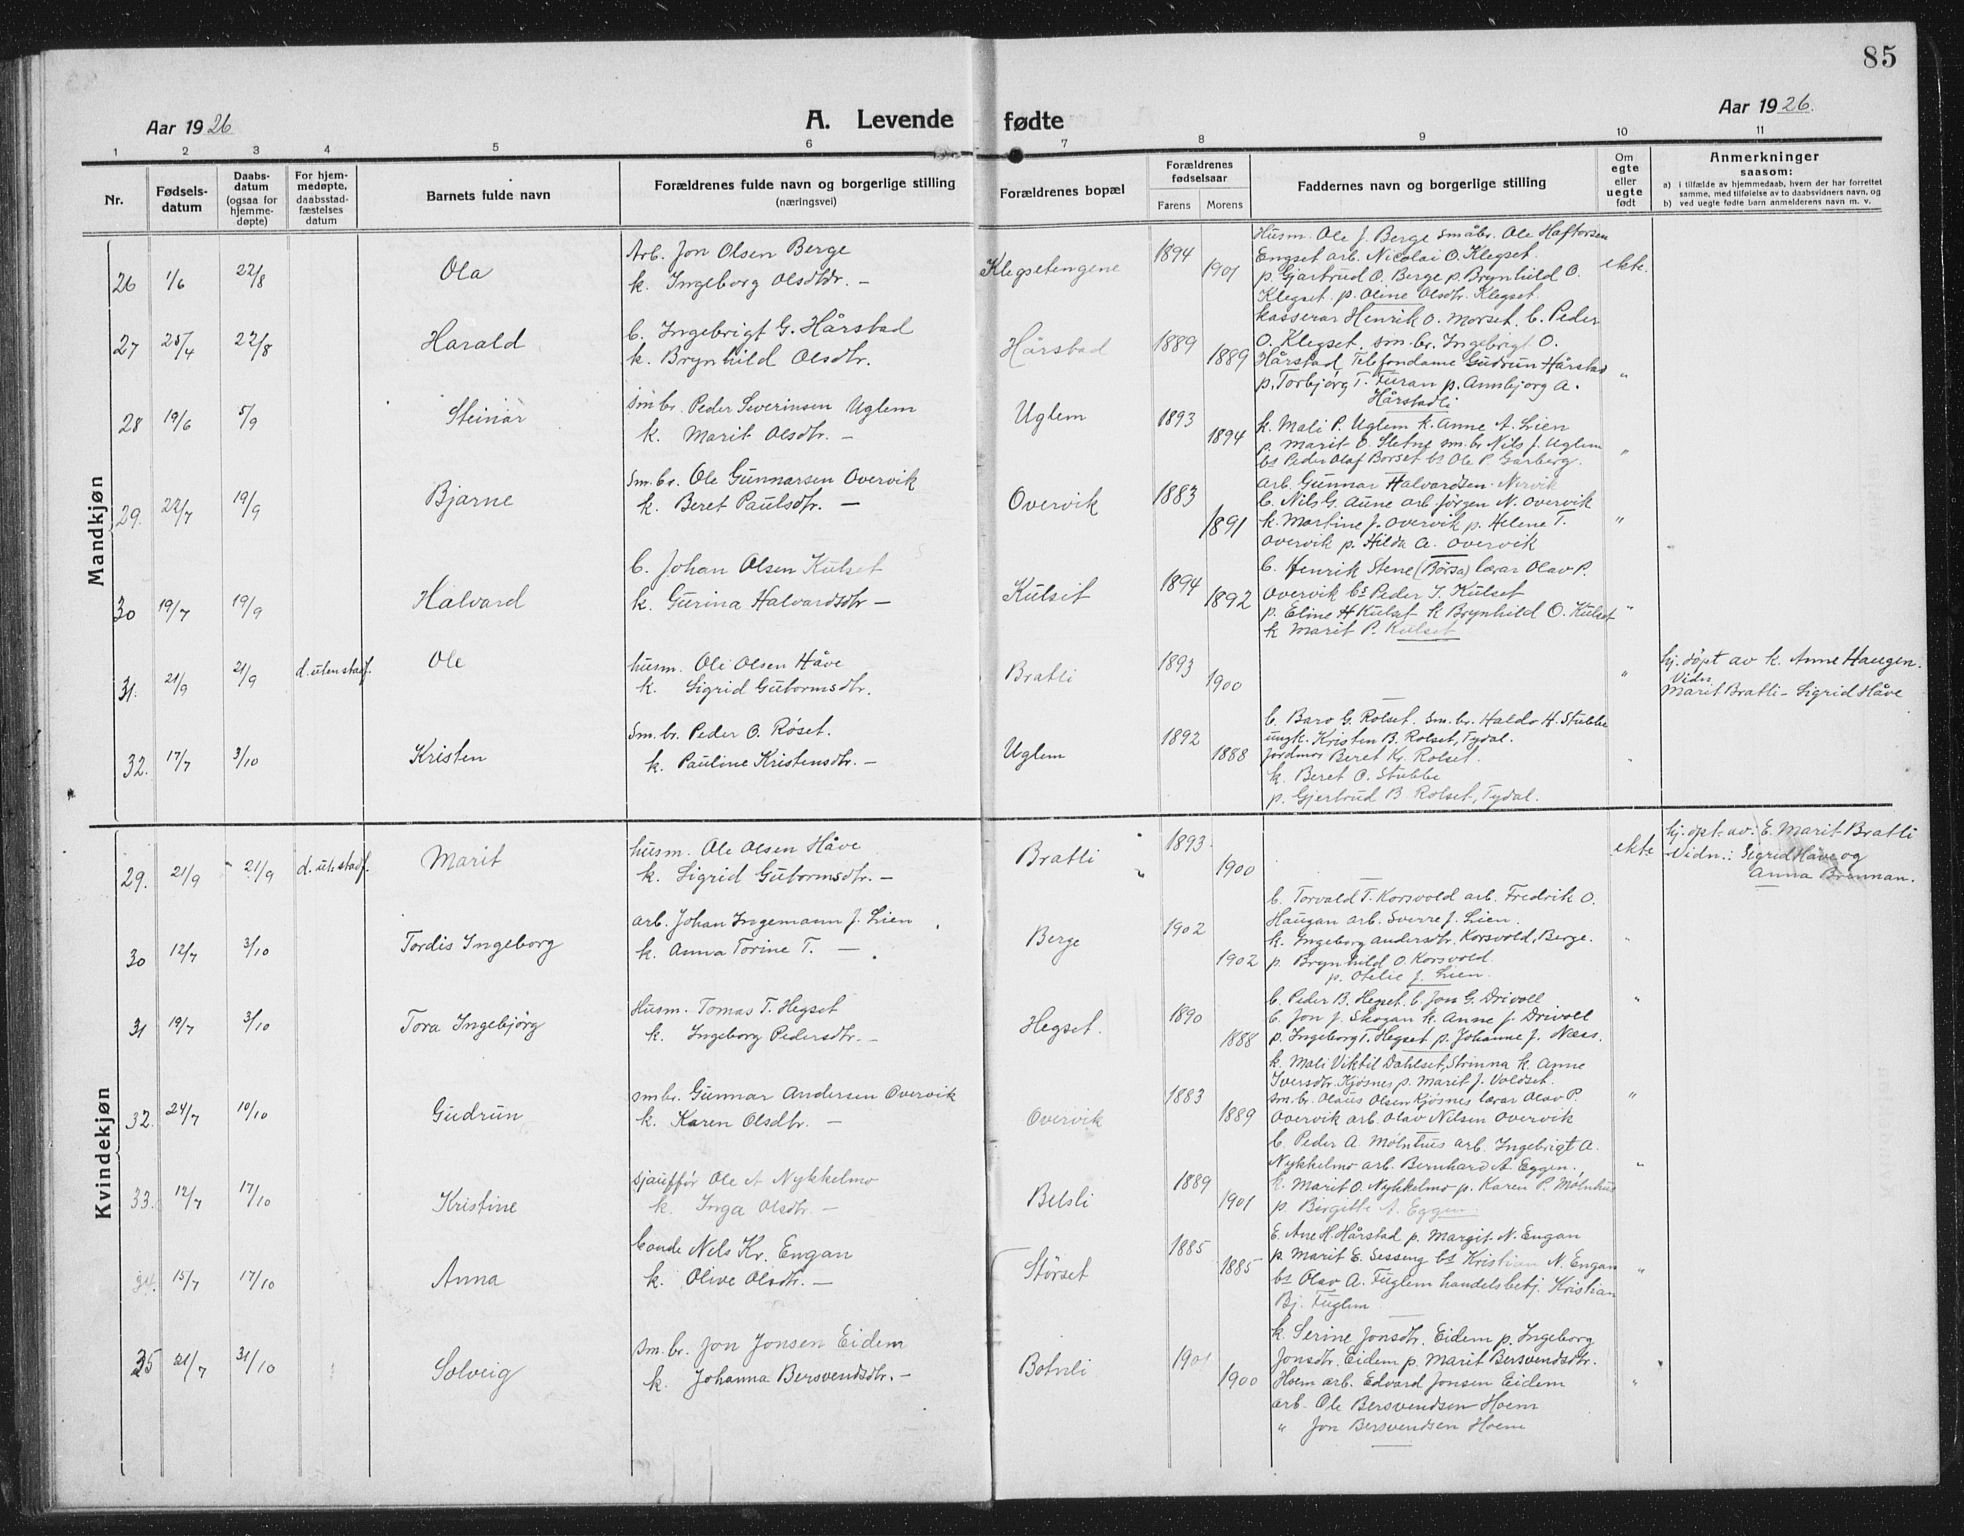 85
Aar 1926
A. Levende fødte
Aar 1926.
1 2 3 4 5 6 7 8 9 10 11
Nr.
Fødsels-
datum
Daabs-
datum
(ogsaa for
hjemme-
døpte)
For hjem-
medøpte,
daabsstad-
fæstelses
datum
Barnets fulde navn
Forældrenes fulde navn og borgerlige stilling
(næringsvei)
Forældrenes bopæl
Forældrenes
fødselsaar
Farens Morens
Faddernes navn og borgerlige stilling
Om
egte
eller
uegte
født
Anmerkninger
saasom:
a) i tilfælde av hjemmedaab, hvem der har forrettet
samme, med tilføielse av to daabsvidners navn, og
b) ved uegte fødte barn anmelderens navn m. v.
Mandkjøn
26 1/6 22/8 Ola
Arb. Jon Olsen Berge
k. Ingeborg Olsdtr. —
Klegsetengene 1894 1901
Husm. Ole J. Berge småbr. Ole Haftorsen
Engset arb. Nicolai O. Klegset.
p. Gjartrud O. Berge p. Brynhild O.
Klegset. p. Oline Olsdtr. Klegset.
ekte.
27 25/4 22/8 Harald
b. Ingebrigt G. Hårstad
k. Brynhild Olsdtr.
Hårstad 1889 1889
kasserar Henrik O. Morset. b. Peder
O. Klegset, sm. br. Ingebrigt O.
Hårstad Telefondame Gudrun Hårstad
p. Torbjørg T. Furan p. Annbjorg A.
Hårstadli
"
28 19/6 5/9 Steinar
Smbr. Peder Severinsen Uglem
k. Marit Olsdtr. —
Uglem 1893 1894
k. Mali P. Uglem k. Anne A. Lien
p. Marit O. Sletne sm. br Nils J. Uglem
bs Peder Olaf Borset bs Ole P. Garberg.
"
29. 22/7 19/9 Bjarne
Sm. br. Ole Gunnarsen Overvik
k. Beret Paulsdtr. —
Overvik 1883 1891
arb. Gunnar Halvardsen Nervik
b. Nils G. Aune arb Jørgen N. Overvik
k. Martine J. Overvik p. Helene T.
Overvik p. Hilda A. Overvik
"
30 19/7 19/9 Halvard
b. Johan Olsen Kulset
k. Gurina Halvardsdtr —
Kulset 1894 1892
b. Henrik Stene (Børsa) lærar Olav P.
Overvik bs Peder J. Kulset
p. Eline H Kulset k Brynhild O. Kulset
k Marit P. Kulset
"
31. 21/9 21/9 d. uten stadf. Ole
husm. Ole Olsen Håve
k. Sigrid Gutormsdtr.
Bratli 1893 1900
"
hj. døpt av k. Anne Haugen.
Vidn
Marit Bratli - Sigrid Håve
32. 17/7 3/10 Kristen
Sm. br. Peder O. Røset.
k. Pauline Kristensdtr. —
Uglem 1892 1888
b. Baro G. Rolset. Sm. br. Haldo H. Stubbe
ungk. Kristen B. Rolset, Tydal.
jordmor Beret Kr. Rolset.
k. Beret O. Stubbe
p. Gjertrud B. Rolset, Tydal.
"
Kvindekjøn
29. 21/9 21/9 d. ute stadf. Marit
husm. Ole Olsen Håve
k. Sigrid Gutormsdtr. —
Bratli 1893 1900
ekte
hj. døpt av: E. Marit Bratli
Vidn.: Sigrid Håve og
Anna Brennan.
30 12/7 3/10 Tordis Ingeborg
arb. Johan Ingemann J. Lien
k. Anna Torine T. —
Berge 1902 1902
b. Torvald T. Korsvold arb. Fredrik O.
Haugan arb. Sverre J. Lien.
k. Ingeborg Andersdtr. Korsvold, Berge.
p. Brynhild O. Korsvold
p. Otelie J. Lien.
"
31 19/7 3/10 Tora Ingebjörg
Husm. Tomas T. Hegset
k. Ingeborg Pedersdtr. —
Hegset. 1890 1888
b. Peder B. Hegset. b. Jon G. Drivoll
b. Jon J. Skogan k. Anne J. Drivoll
p. Ingeborg T. Hegset p. Johanne J. Næss.
"
32. 24/7 10/10 Gudrun
smbr. Gunnar Andersen Overvik
k. Karen Olsdtr. —
Overvik 1883 1889
k. Mali Viktil Dahlset, Strinna k. Anne
Iversdtr. Kjøsnes p. Marit J. Voldset.
sm. br. Olaus Olsen Kjøsnes lærar Olav P.
Overvik arb. Olav Nilsen Overvik
"
33. 12/7 17/10 Kristine
Sjauffør Ole A Nykkelmo
k. Inga Olsdtr. —
Belsli 1889 1901
b. Peder A. Mølnhus arb. Ingebrigt A.
Nykkelmo arb. Bernhard A. Eggen,
k. Marit O. Nykkelmo p. Karen P. Mølnhus
p. Birgitte A. Eggen.
"
34. 15/7 17/10 Anna
bonde Nels Kr. Engan
k. Olive Olsdtr. —
Størset 1885 1885
E. Ane H. Hårstad p. Margit N. Engan
p. Marit E. Sesseng bs Kristian N. Engan
bs Olav A. Fuglem handelsbetj. Kristian
Bj. Fuglem
"
35 21/7 31/10 Solveig
Sm. br. Jon Jonsen Eidem
k. Johanna Bersvendsdtr. —
Botnli 1901 1900
k. Serine Jonsdtr. Eidem p. Ingeborg
Jonsdtr. Eidem p. Marit Bersvendsdtr.
Hoem arb. Edvard Jonsen Eidem
arb. Ole Bersvendsen Hoem
" Jon Bersvendsen Hoem
"